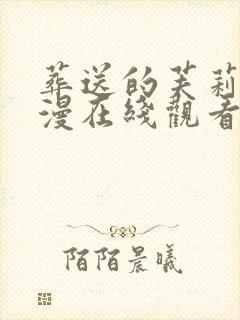 葬送的芙莉
漫在綫觀看
陌陌晨曦